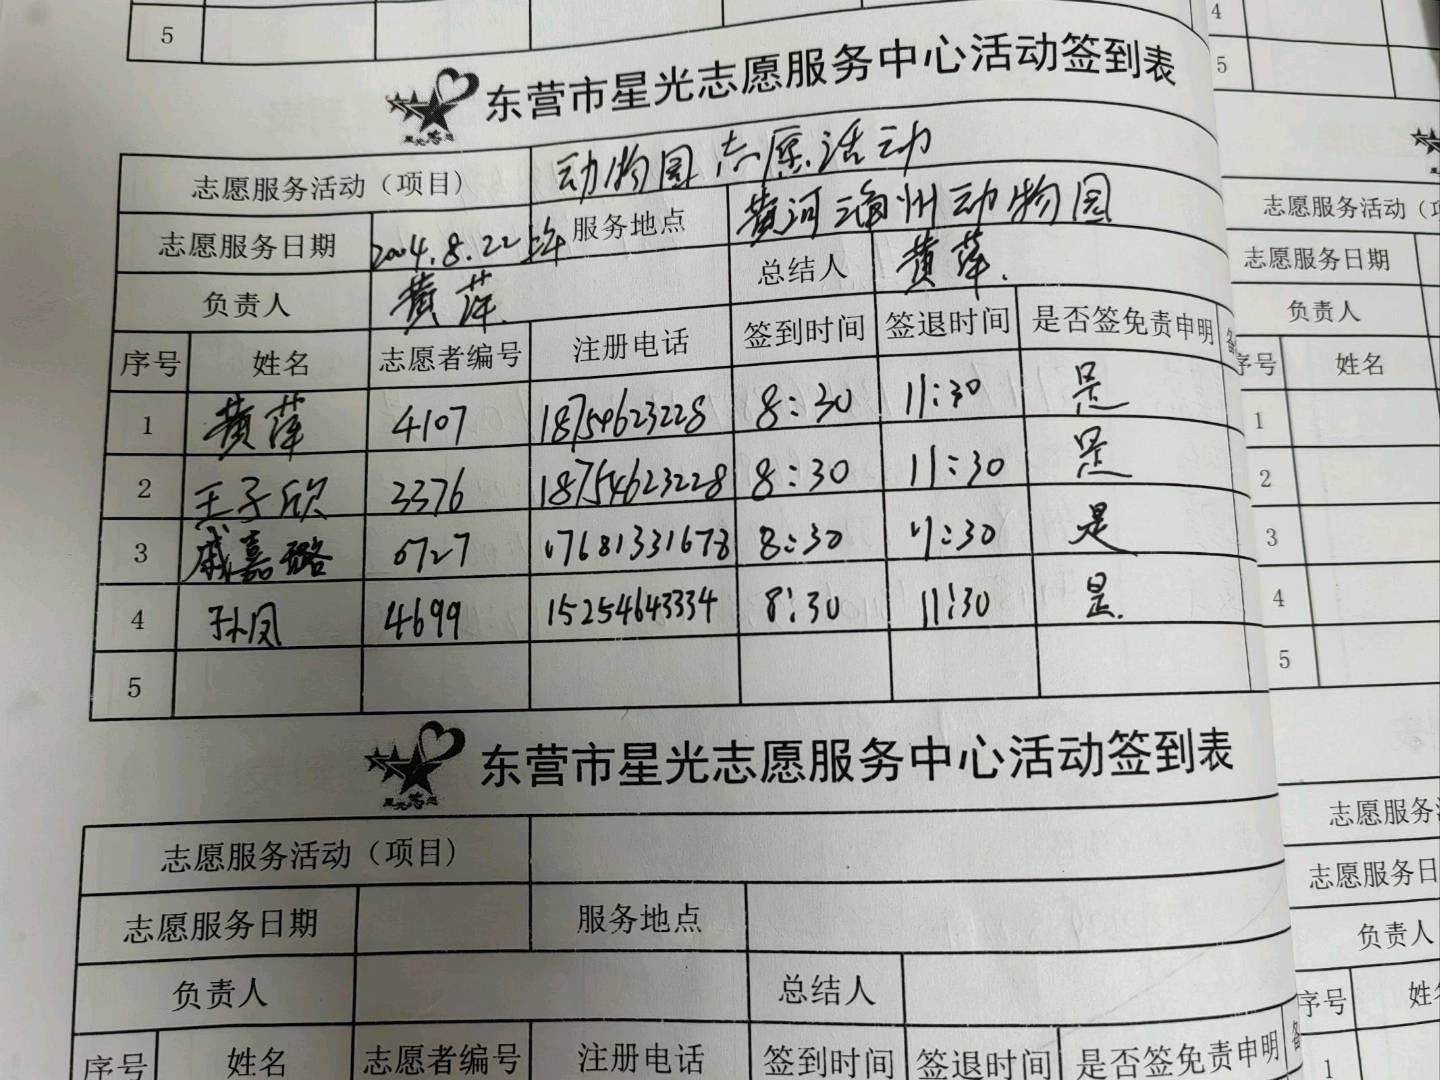 5
4
5
东营市星光志愿服务中心活动签到表
志愿服务活动（项目） 动物园志愿活动
志愿服务日期 2004.8.22上午 服务地点 黄河海州动物园
负责人 黄萍 总结人 黄萍.
序号 姓名 志愿者编号 注册电话 签到时间 签退时间 是否签免责申明
1 黄萍 4107 18754623228 8:30 11:30 是
2 王子欣 3376 18754623228 8:30 11:30 是
3 戚嘉璐 0727 17681331678 8:30 11:30 是
4 孙凤 4699 15254643334 8:30 11:30 是.
5
志愿服务活动（项
志愿服务日期
负责人
序号 姓名
1
2
3
4
5
东营市星光志愿服务中心活动签到表
志愿服务活动（项目）
志愿服务日期 服务地点
负责人 总结人
序号 姓名 志愿者编号 注册电话 签到时间 签退时间 是否签免责申明
志愿服务
志愿服务日
负责人
序号 姓
1